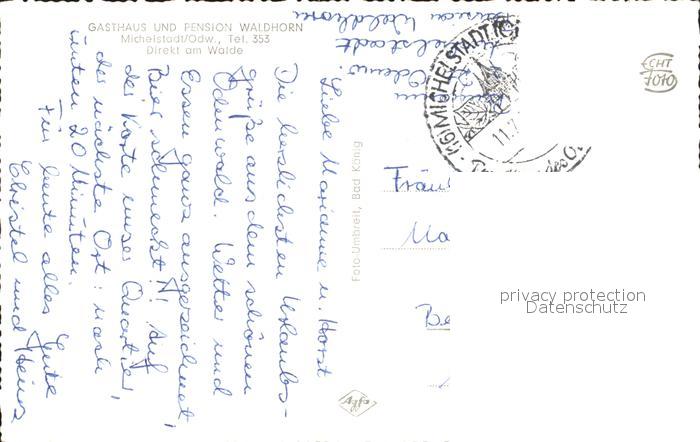 GASTHAUS UND PENSION WALDHORN
Michelstadt/Odw., Tel. 353
Direkt am Walde
Liebe Marianne u. Horst
Die herzlichsten Urlaubs-
grüße aus dem schönen
Odenwald. Wetter und
Essen ganz ausgezeichnet,
Bier schmeckt!! Auf
der Karte unser Quartier,
der nächste Ort: nach
unten 20 Minuten.
Für heute alles Gute
Christel und Heinz
Foto-Umbreit, Bad König
Agfa
Pension Waldhorn
Odenw.
(16) MICHELSTADT
11.7
ECHT
7010
Fräu
Ma
Be
privacy protection
Datenschutz